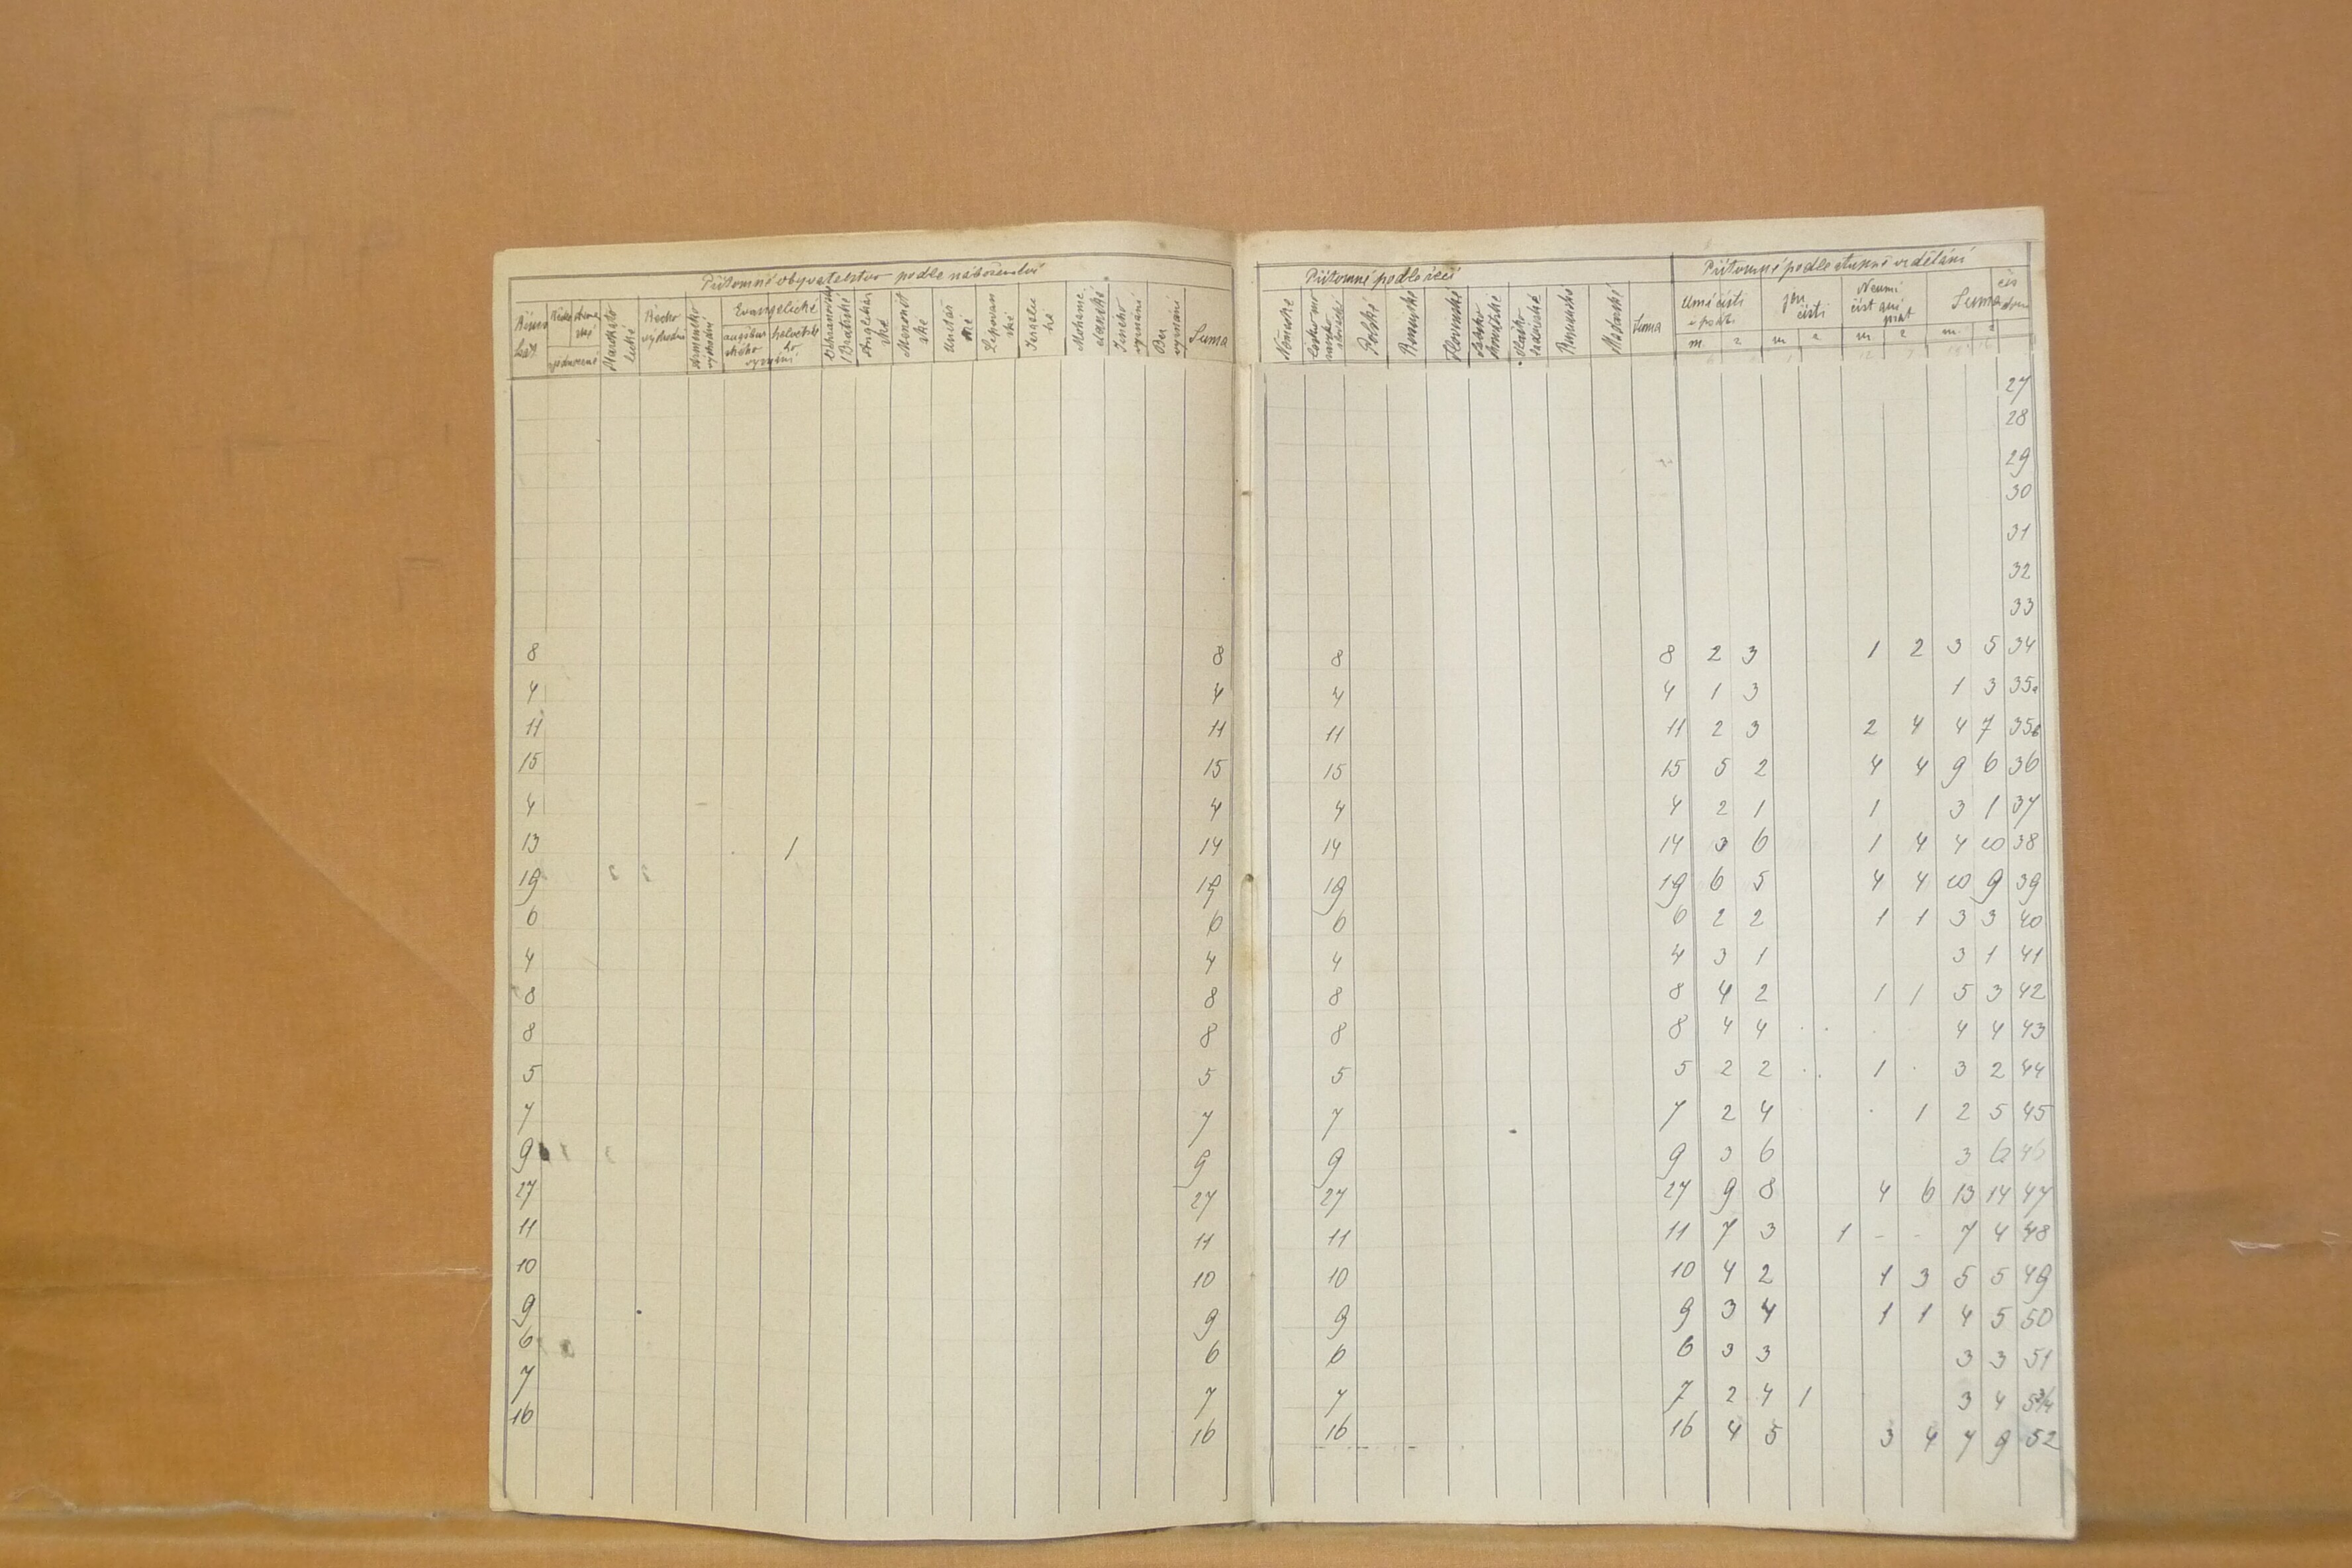 Přítomné obyvatelstvo podle náboženství
Evangelické
augsbur
ského
helvetské
ho
vyznání
Řecko
východní
Anglikán
ské
Menonit
ské
Unitář
ské
Lipovan
ské
Israelit
ské
Jiného
vyznání
Bez
vyznání
Suma
Přítomné podle řeči
Přítomné podle stupně vzdělání
Německé
Polské
Slovinské
Rumunské
Maďarské
Suma
Umí čísti
i psáti
jen
čísti
Neumí
číst ani
psát
Suma
čís
domu
m ž m ž m ž m ž
27
28
29
30
31
32
33
8 8 8 8 2 3 1 2 3 5 34
4 4 4 4 1 3 1 3 35a
11 11 11 11 2 3 2 4 4 7 35b
15 15 15 15 5 2 4 4 9 6 36
4 4 4 4 2 1 1 3 1 37
13 1 14 14 14 3 6 1 4 4 10 38
19 19 19 19 6 5 4 4 10 9 39
6 6 6 6 2 2 1 1 3 3 40
4 4 4 4 3 1 3 1 41
8 8 8 8 4 2 1 1 5 3 42
8 8 8 8 4 4 · · · 4 4 43
5 5 5 5 2 2 · · 1 · 3 2 44
7 7 7 7 2 4 · 1 2 5 45
9 9 9 9 3 6 3 6 46
27 27 27 27 9 8 4 6 13 14 47
11 11 11 11 7 3 1 - - 7 4 48
10 10 10 10 4 2 1 3 5 5 49
9 9 9 9 3 4 1 1 4 5 50
6 6 6 6 3 3 3 3 51
7 7 7 7 2 4 1 3 4
16 16 16 16 4 5 3 4 7 9 52